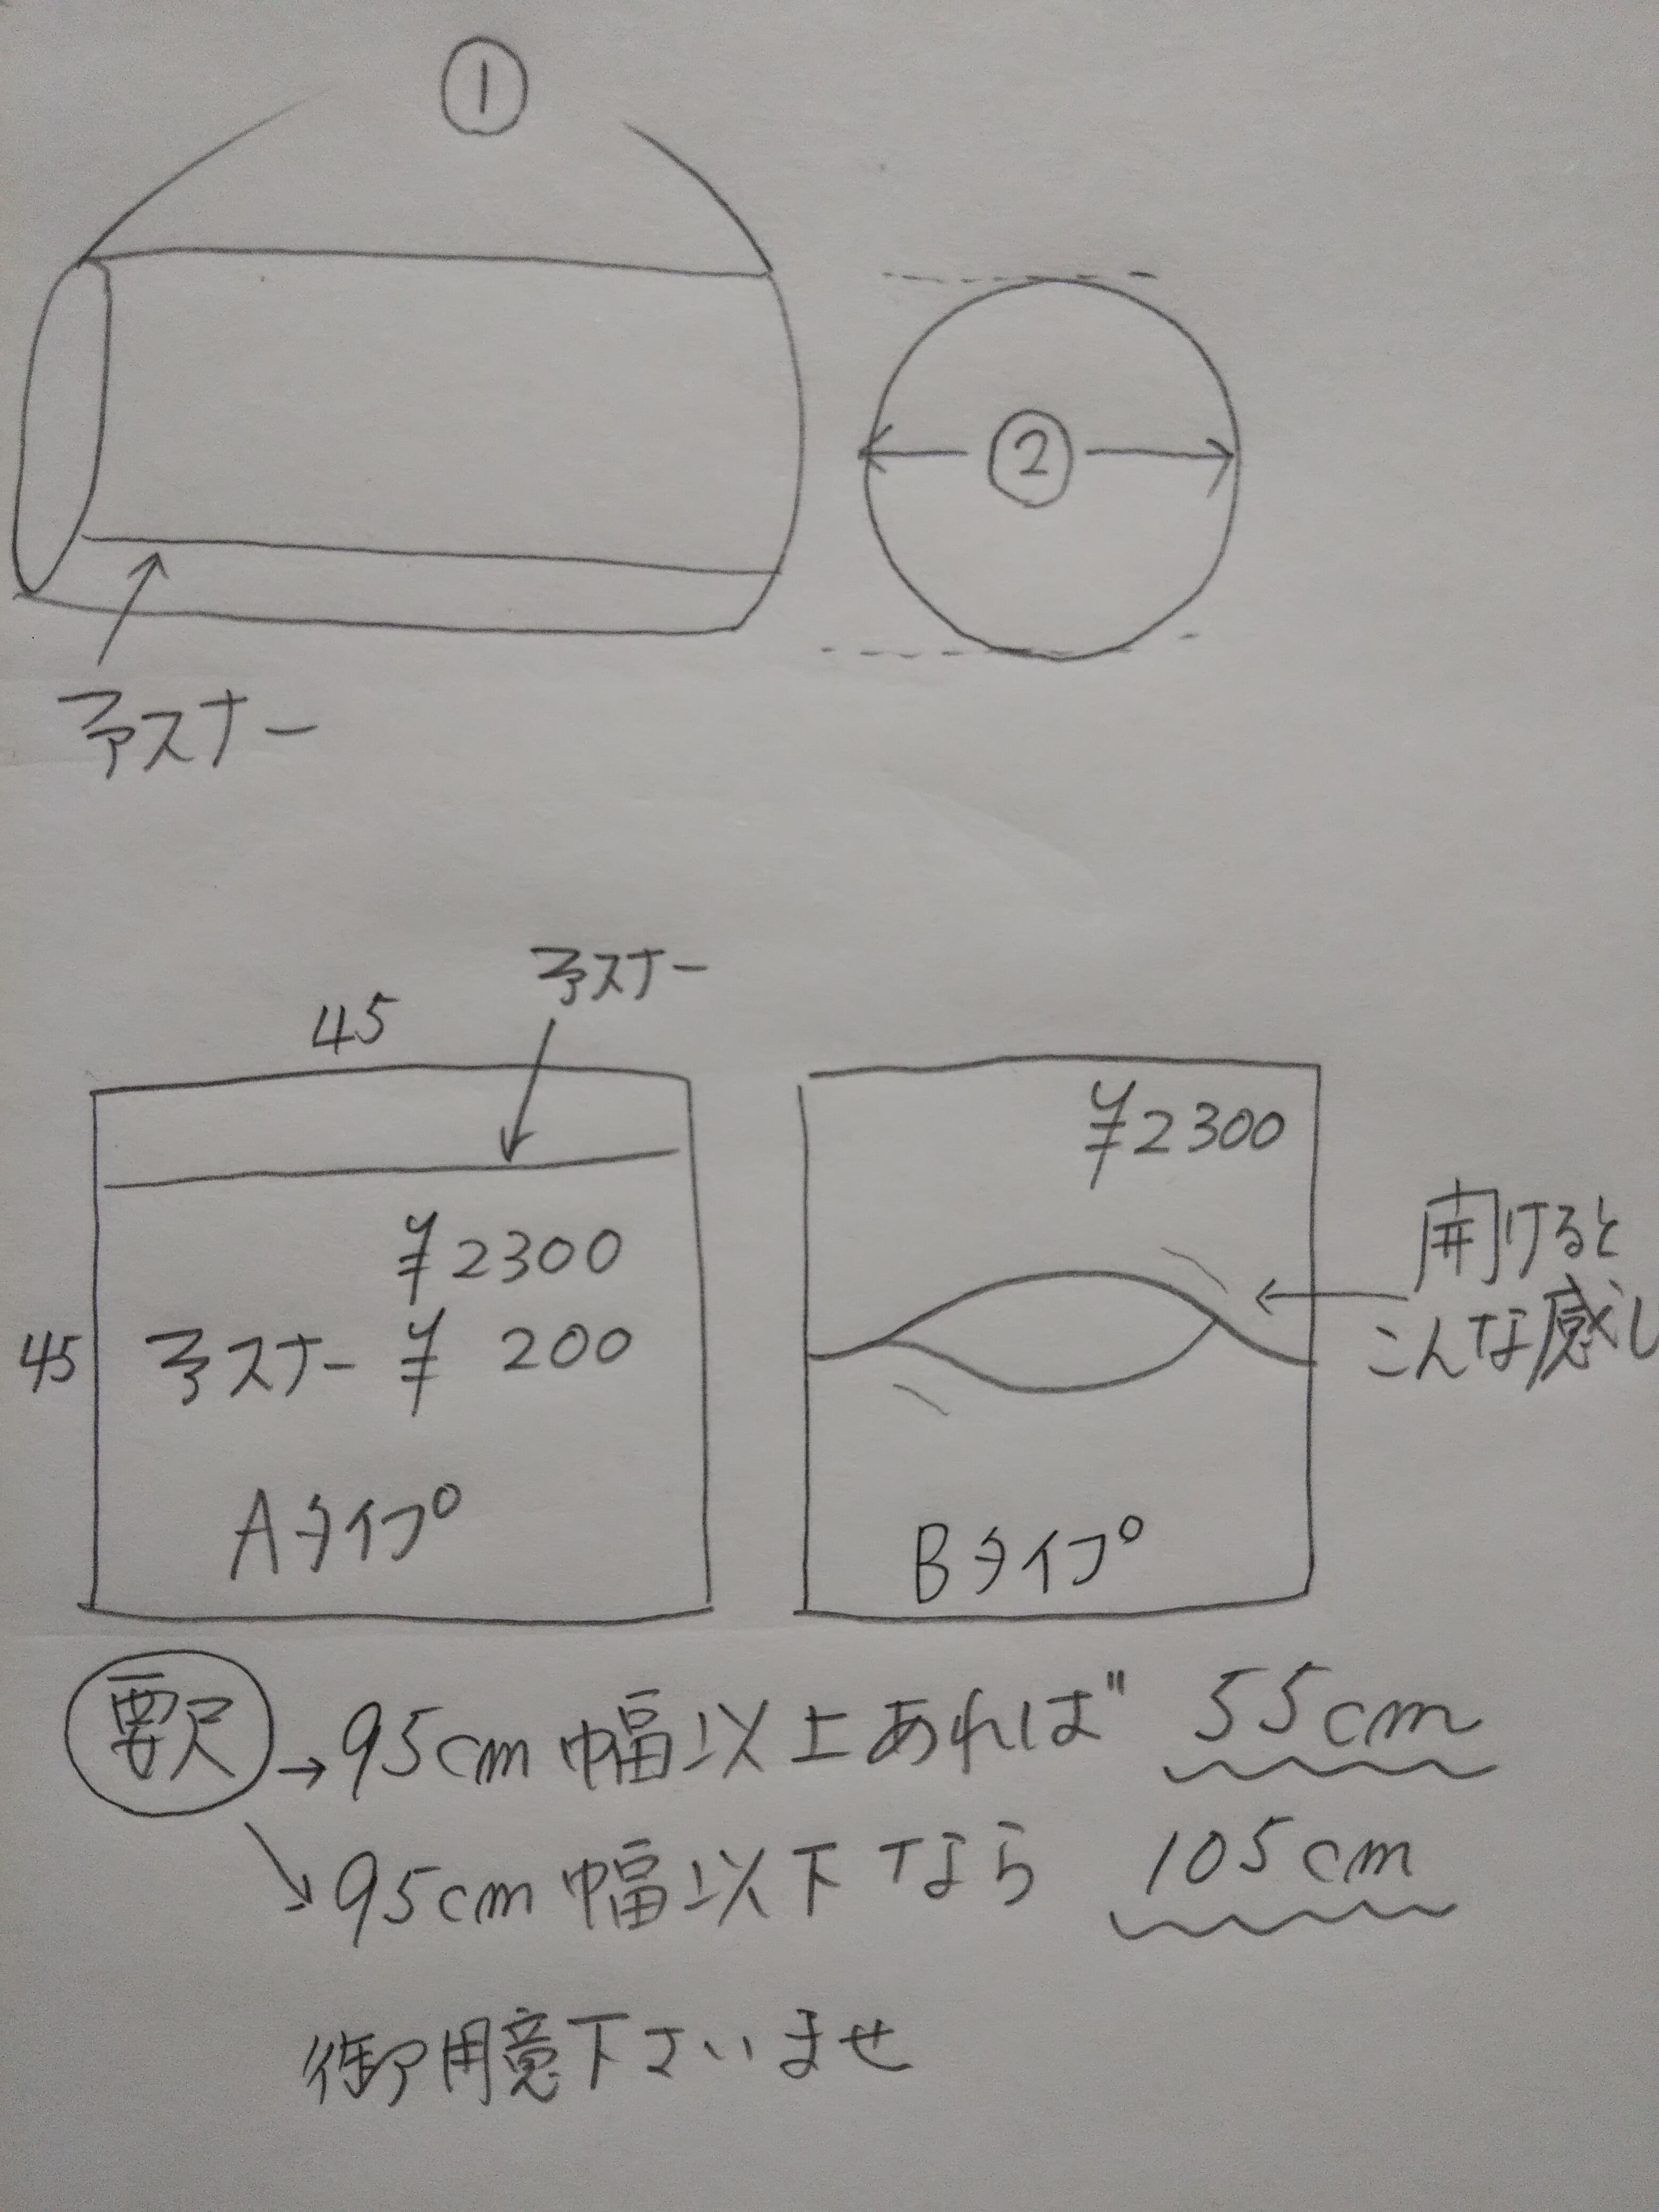 ①
②
ファスナー
ファスナー
45
45
¥2300
ファスナー ¥ 200
Aタイプ
¥2300
開けると
こんな感じ
Bタイプ
要尺 → 95cm幅以上あれば 55cm
↘ 95cm幅以下なら 105cm
御用意下さいませ